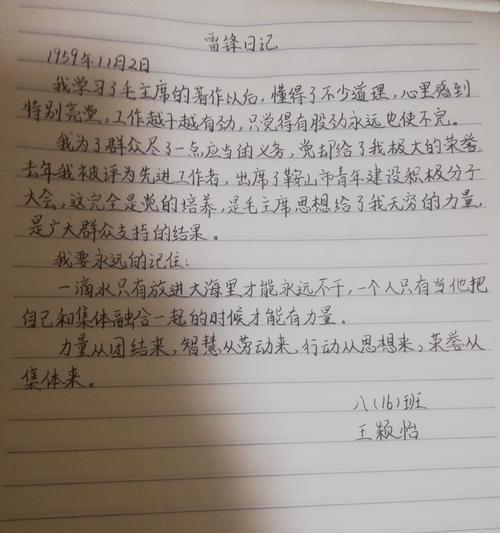 雷锋日记
1959年11月2日
我学习了毛主席的著作以后，懂得了不少道理，心里感到
特别亮堂，工作越干越有劲，只觉得有股劲永远也使不完。
我为了群众尽了一点应当的义务，党却给了我极大的荣誉，
去年我被评为先进工作者，出席了鞍山市青年建设积极分子
大会，这完全是党的培养，是毛主席思想给了我无穷的力量，
是广大群众支持的结果。
我要永远的记住：
一滴水只有放进大海里才能永远不干，一个人只有当他把
自己和集体融合一起的时候才能有力量.
力量从团结来，智慧从劳动来，行动从思想来，荣誉从
集体来。
八(16)班
王颖怡